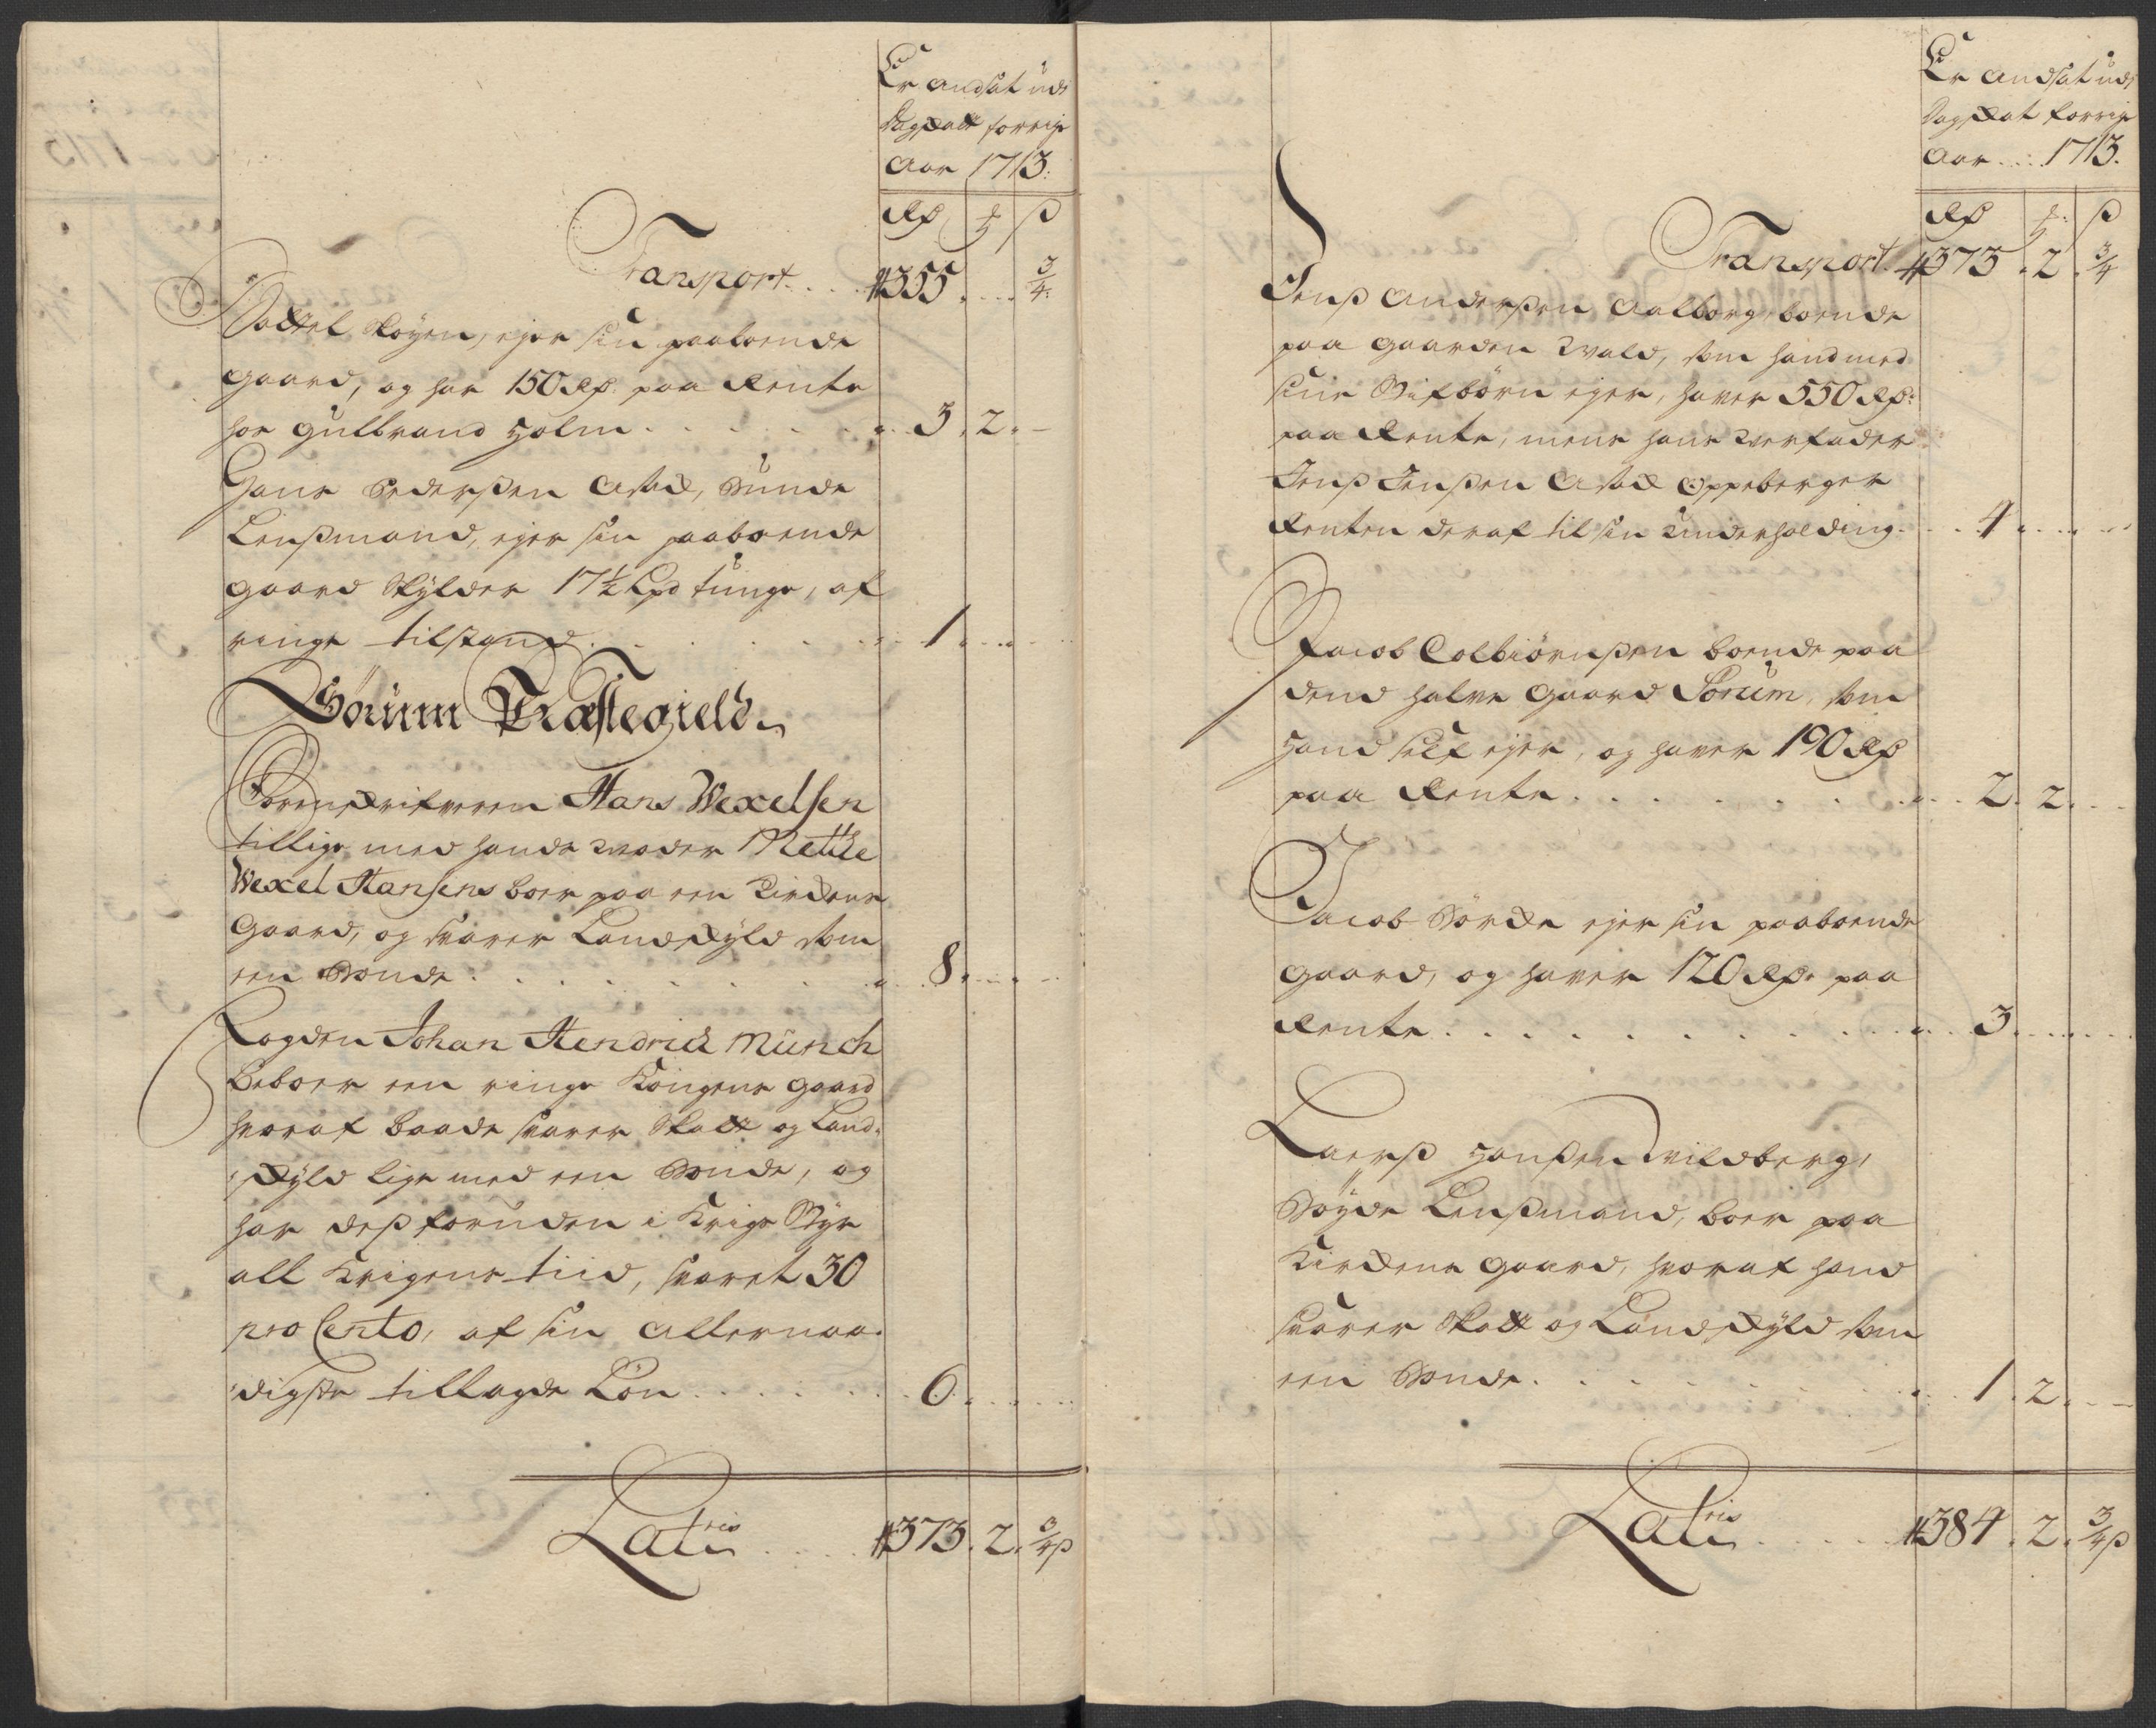 Er andsat udi
Dagskatt forrige
Aar 1713:
Rd
ß
Transport 355 3/4
ejer sin paaboende
gaard, og har 150 Rd: paa Rente
hos Gulbrand Holm 3. 2.
Hans Pedersen Asak, Sunde
Lensmand, ejer sin paaboende
gaard skylder 17½ Lpd tunge, af
ringe tilstand 1
Sörum Præstegield
Sorenskrifveren Hans Wexelsen
tillige med hands moder Mette
Wexel Hansens boer paa een Kirkens
Gaard, og svarer Landskyld som
een Bonde 8
Fogden Johan Hendrich Münch
beboer een ringe Kongens gaard
hvoraf baade svarer Skatt og Land-
skyld lige med een Bonde, og
har desforuden i Krigs Styr
all Krigens tiid, svaret 30
pro Cento, af sin allernaa-
digste tillagde Lön 6
Lateris 373. 2. 3/4 ß
Er andsat udi
Dagskat forrige
Aar 1713.
Rd
ß
Transport 373. 2. 3/4
Jens Andersen Aalborg, boende
paa gaarden Wald, som hand med
sine Stifbörn ejer, haver 550 Rd:
paa Rente, mens hans Werfader
Jens Jensen Asak Oppeberger
Renten deraf til sin Underholding 4
Jacob Colbiörnsen boende paa
dend halve gaard Sörum, som
hand self ejer, og haver 190 Rd
paa Rente 2. 2.
Jacob ejer sin paaboende
gaard, og haver 120 Rd: paa
Rente 3
Laers Hansen Wildberg,
Böyde Lensmand, boer paa
Kirkens gaard, hvoraf hand
svarer Skatt og Landskyld som
een Bonde 1. 2.
Lateris 384. 2. 3/4 ß